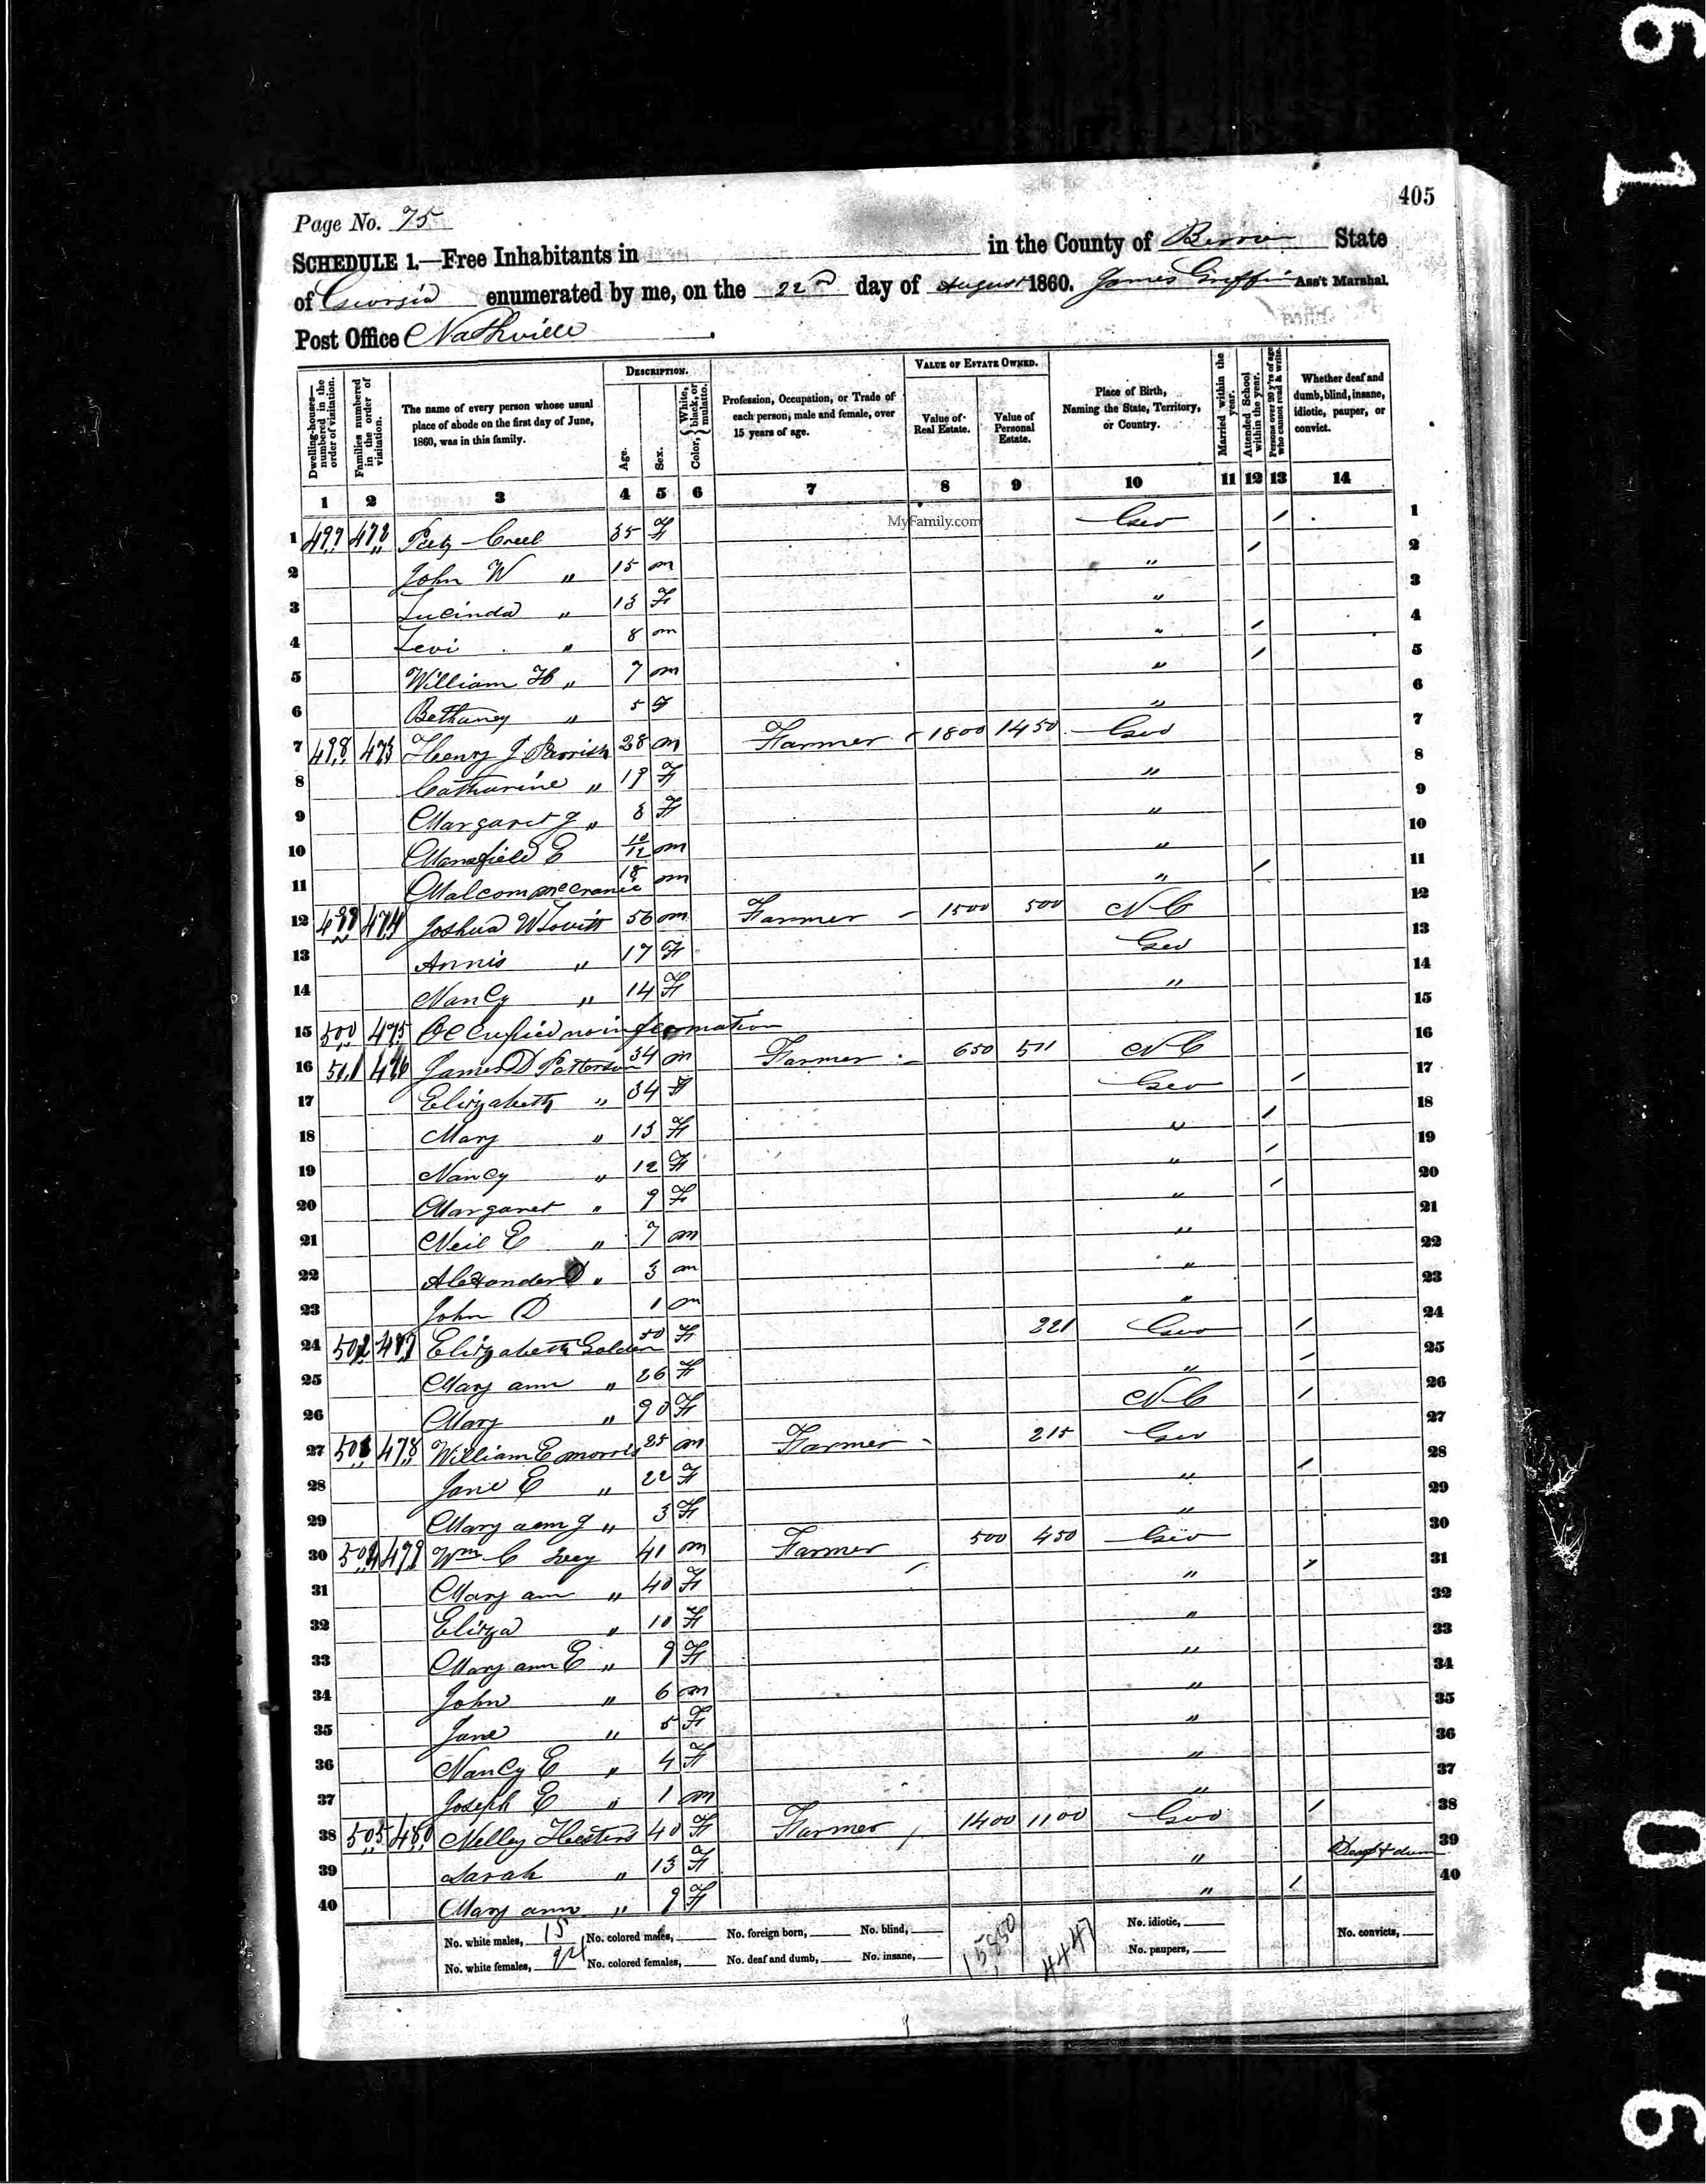 405
Page No. 75
SCHEDULE 1.—Free Inhabitants in in the County of Berrien State
of Georgia enumerated by me, on the 22nd day of August 1860. James Griffin Ass't Marshal.
Post Office Nashville
Dwelling-houses—numbered in the order of visitation.
Families numbered in the order of visitation.
The name of every person whose usual place of abode on the first day of June, 1860, was in this family.
DESCRIPTION.
Age.
Sex.
Color, { White, black, or mulatto.
Profession, Occupation, or Trade of each person, male and female, over 15 years of age.
VALUE OF ESTATE OWNED.
Value of Real Estate.
Value of Personal Estate.
Place of Birth, Naming the State, Territory, or Country.
Married within the year.
Attended School within the year.
Persons over 20 y'rs of age who cannot read & write.
Whether deaf and dumb, blind, insane, idiotic, pauper, or convict.
1 2 3 4 5 6 7 8 9 10 11 12 13 14
MyFamily.com
1 497 472 Creel 35 F Geo / 1
2 John W " 15 m " / 2
3 Lucinda " 13 F " 3
4 Levi " 8 m " / 4
5 William H " 7 m " / 5
6 Bethaney " 5 F " 6
7 498 473 Henry J Parrish 28 m Farmer 1800 1450 Geo 7
8 Catharine " 19 F " 8
9 Margaret J " 3 F " 9
10 Mansfield E 10/12 m " 10
11 Malcom McCranie 18 m " / 11
12 499 474 Joshua W Lovitt 56 m Farmer 1500 500 N C 12
13 Annis " 17 F Geo 13
14 Nancy " 14 F " 14
15 500 475 Occupied no information 15
16 501 476 James D Patterson 34 m Farmer 650 511 N C 16
17 Elizabeth " 34 F Geo / 17
18 Mary " 13 F " / 18
19 Nancy " 12 F " / 19
20 Margaret " 9 F " / 20
21 Neil E " 7 m " 21
22 Alexander D " 3 m " 22
23 John D 1 m " 23
24 502 477 Elizabeth Golden 50 F 221 Geo / 24
25 Mary ann " 26 F " / 25
26 Mary " 90 F N C / 26
27 503 478 William E Morris 25 m Farmer 215 Geo 27
28 Jane E " 22 F " / 28
29 Mary ann J " 3 F " 29
30 504 479 Wm C Ivey 41 m Farmer 500 450 Geo 30
31 Mary ann " 40 F " / 31
32 Eliza " 10 F " 32
33 Mary ann E " 9 F " 33
34 John " 6 m " 34
35 Jane " 5 F " 35
36 Nancy E " 4 F " 36
37 Joseph E " 1 m " 37
38 505 480 Nelley Hesters 40 F Farmer 1400 1100 Geo / 38
39 Sarah " 13 F " Deaf & dum 39
40 Mary ann " 9 F " / 40
No. white males, 15 No. colored males, No. foreign born, No. blind, No. idiotic, No. convicts,
No. white females, 24 No. colored females, No. deaf and dumb, No. insane, 4447 No. paupers,